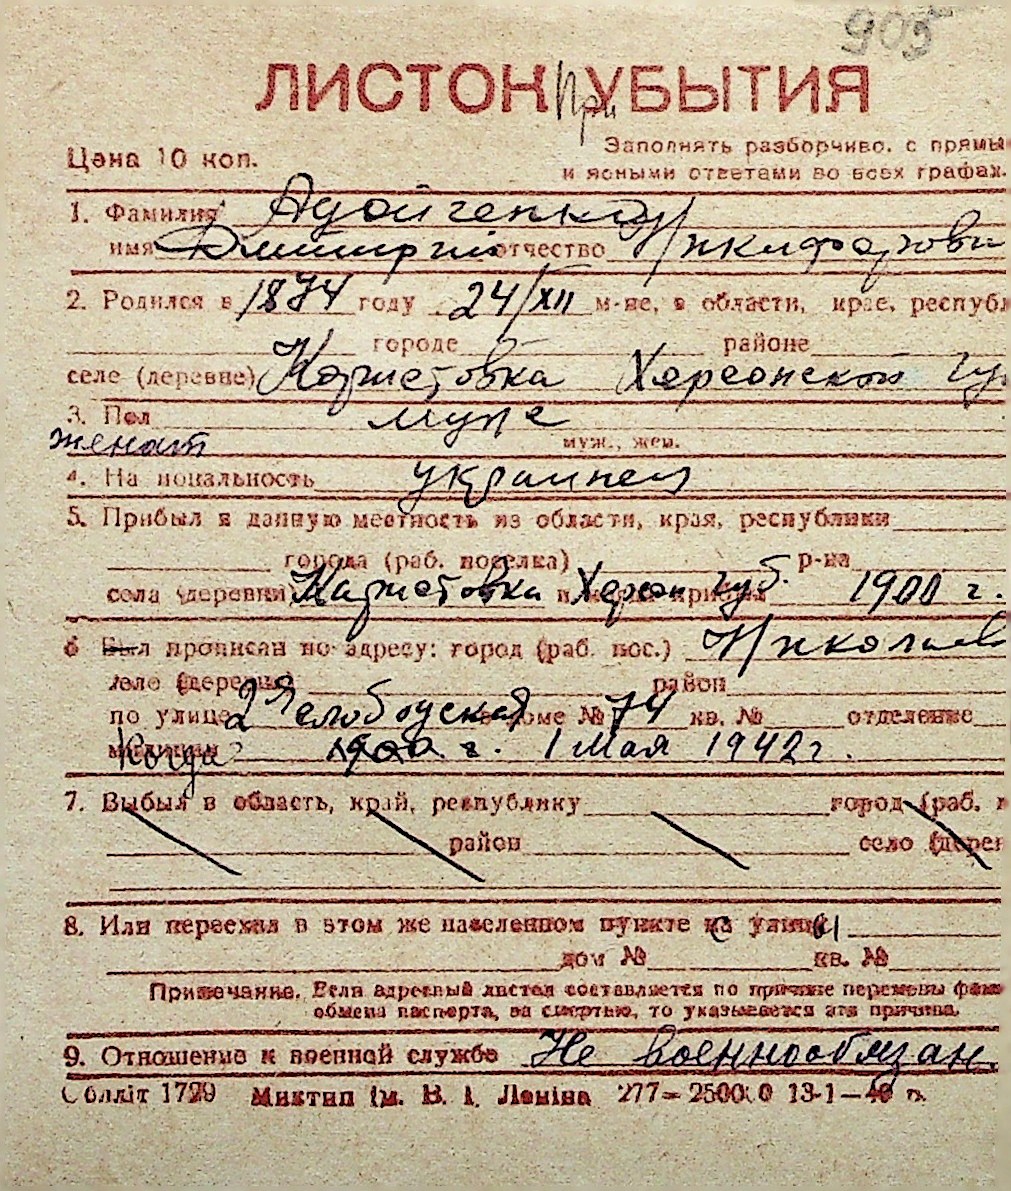 905
ЛИСТОК При УБЫТИЯ
Цена 10 коп.
Заполнять разборчиво, с прямы
и ясными ответами во всех графах.
1. Фамилия
имя Дмитрий отчество Никифорови
2. Родился в 1874 году 24/XII м-це, в области, крае, республ
городе районе
селе (деревне) Каристовка Херсонской гу
3. Пол муж
женат муж., жен.
4. На иональность украинец
5. Прибыл в данную местность из области, края, республики
города (раб. поселка) р-на
села (деревни) Каристовка Херсон губ. 1900 г.
6 Был прописан по адресу: город (раб. пос.) Николаев
село (деревня) район
по улице 2я Слободская доме № 74 кв. № отделение
Когда 1900 г. 1 Мая 1942 г.
7. Выбыл в область, край, республику город (раб. п
район село (дерев
8. Или переехал в этом же населенном пункте с улицы
дом № кв. №
Примечание. Если адресный листок составляется по причине перемены фам
обмена паспорта, за смертью, то указывается эта причина.
9. Отношение к военной службе Не военнообязан.
Облліт 1729 Миктип ім. В. І. Леніна 277— 25000 13-1—40 р.